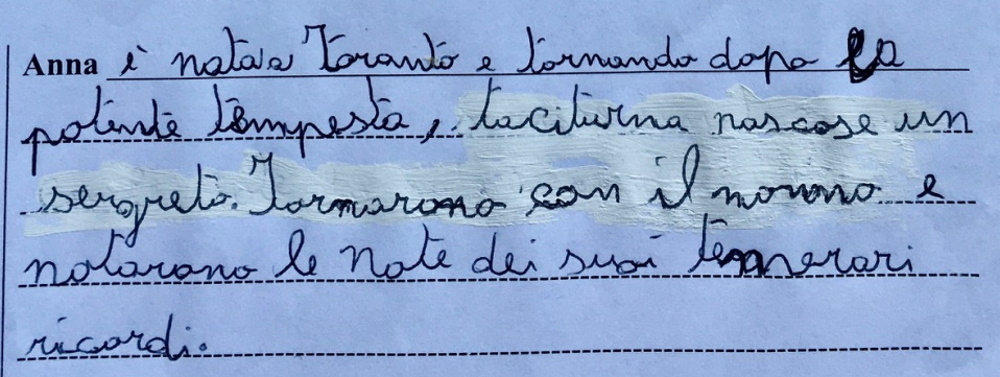 Anna è nata a Taranto e tornando dopo la
potente tempesta, taciturna nascose un
sergreto. Tornarono con il nonno e
notarono le note dei suoi temerari
ricordi.